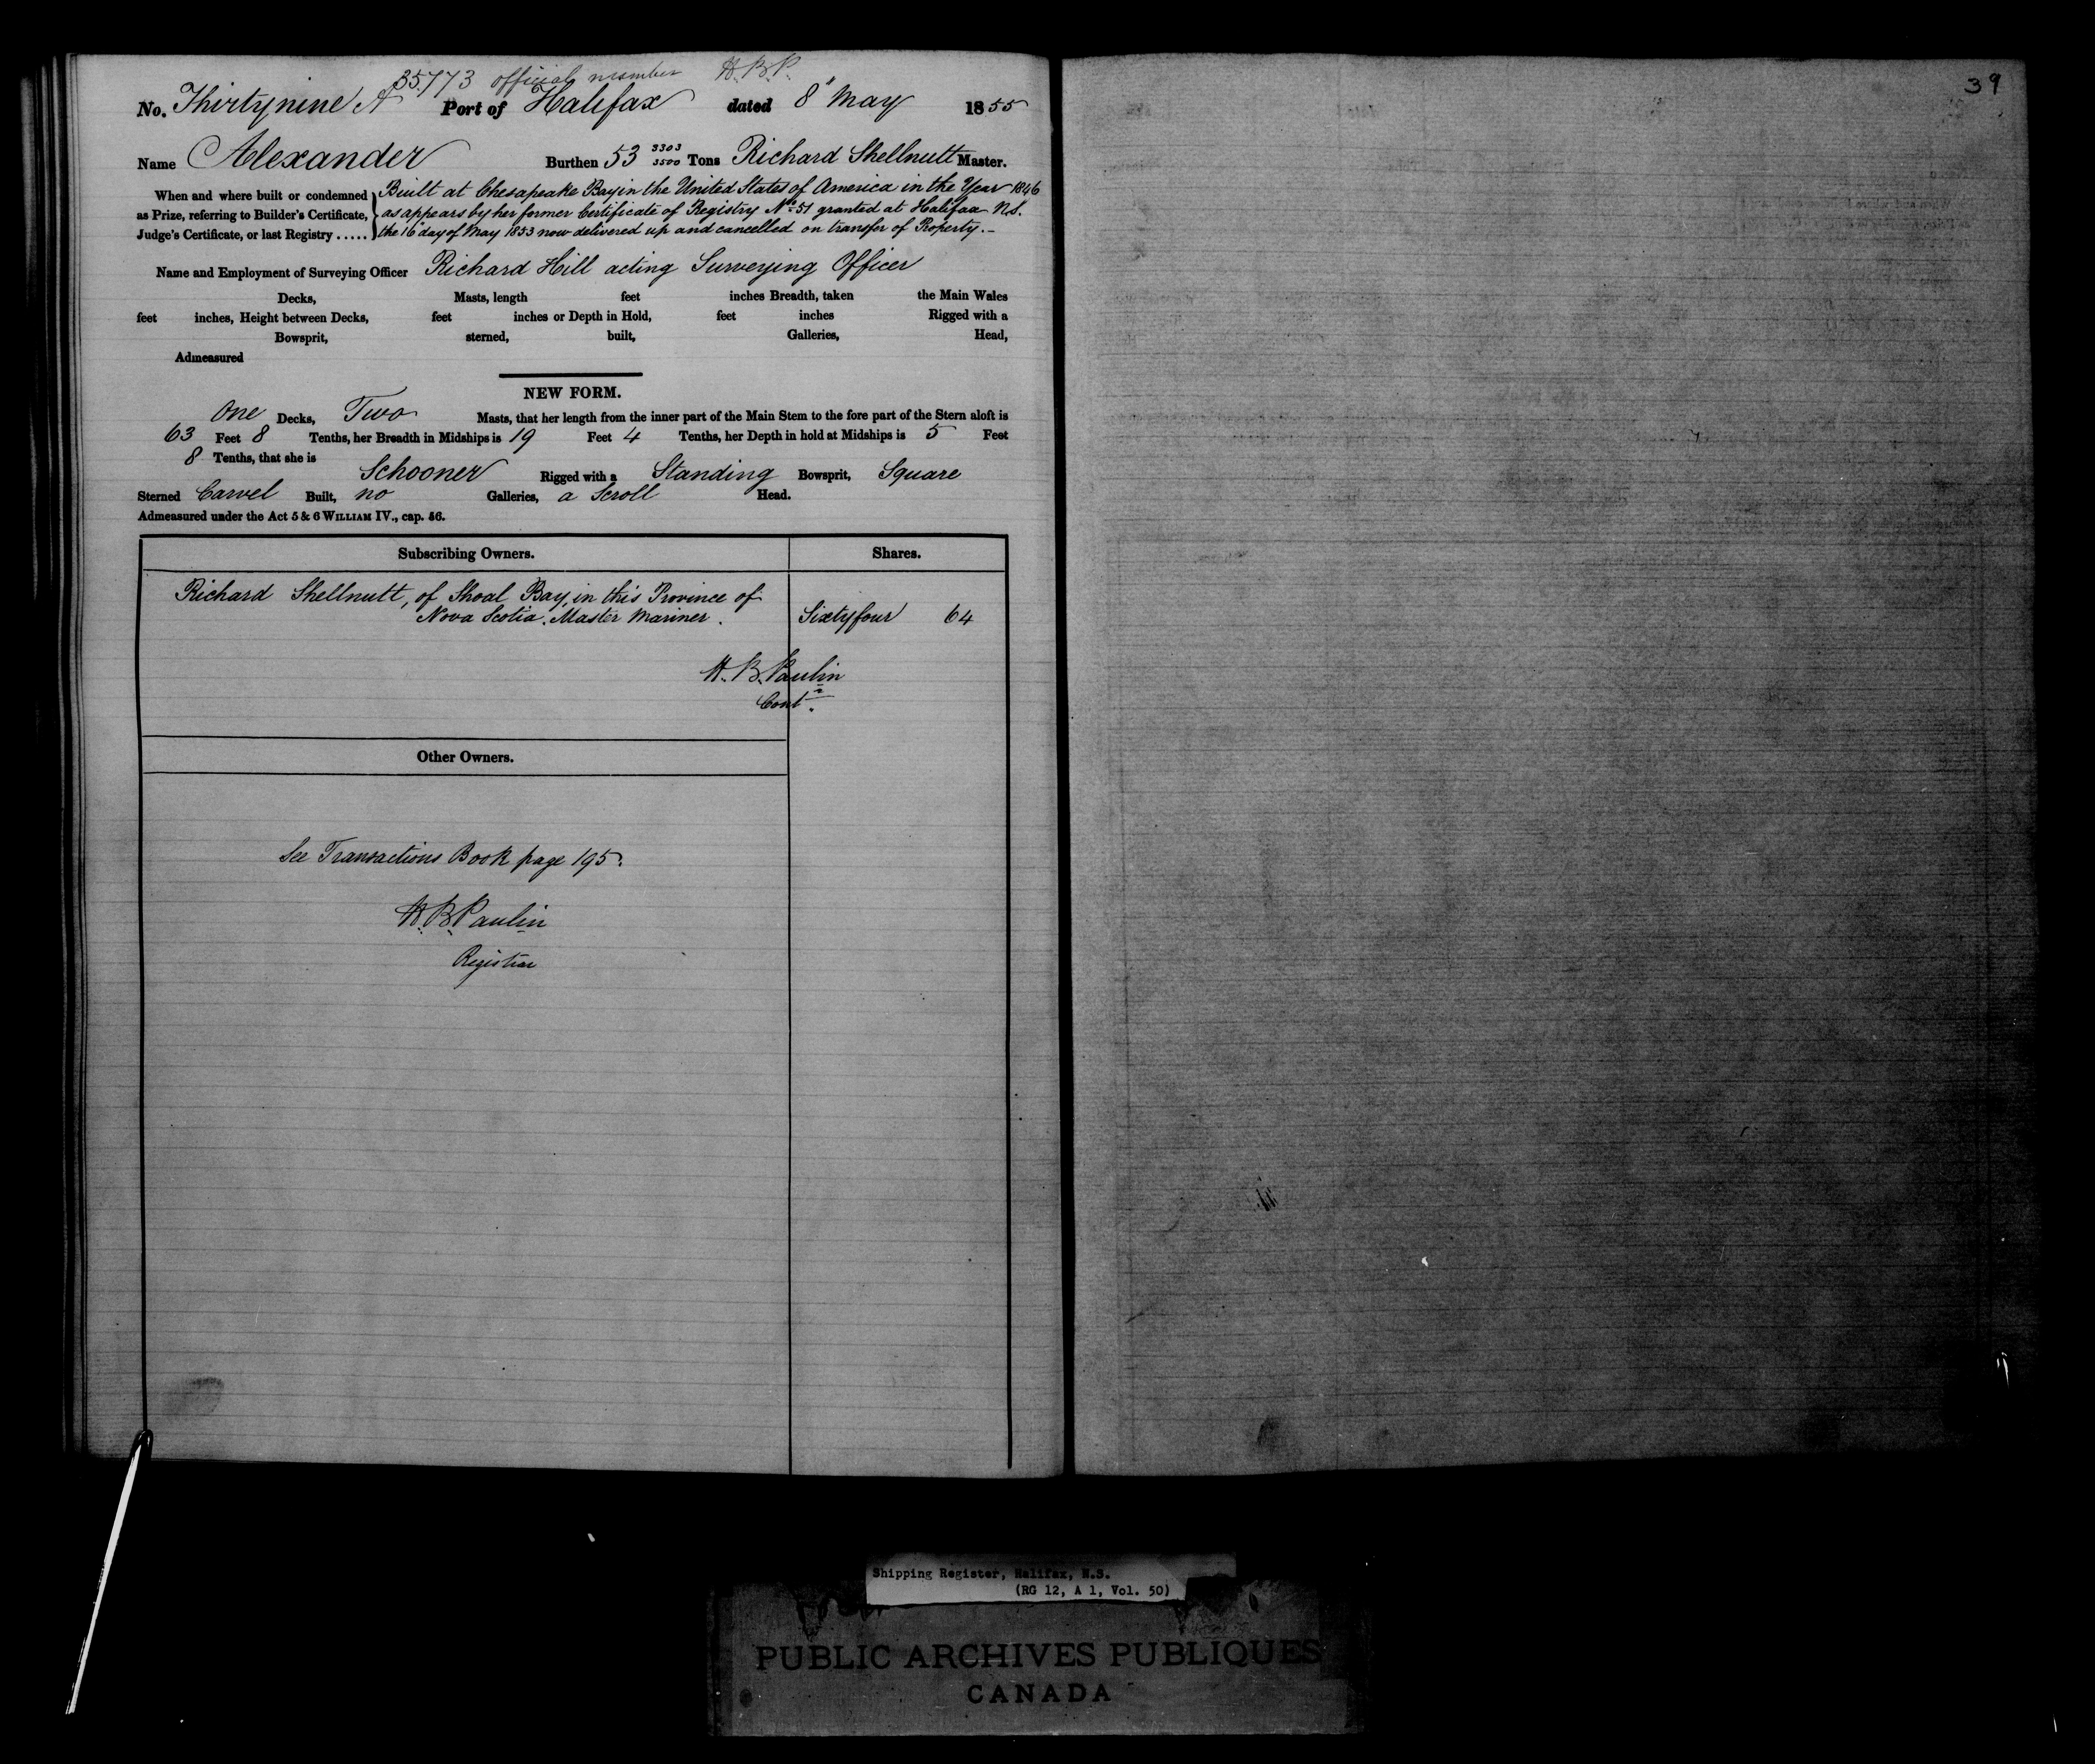 35773 official number H.B.P.
No. Thirtynine A Port of Halifax dated 8" May 1855
Name Alexander Burthen 53 3303/3500 Tons Richard Shellnutt Master.
When and where built or condemned as Prize, referring to Builder's Certificate, Judge's Certificate, or last Registry .....
Built at Chesapeake Bay in the United States of America in the Year 1846
as appears by her former Certificate of Registry No 51 granted at Halifax N.S.
the 16 day of May 1853 now delivered up and cancelled on transfer of Property.-
Name and Employment of Surveying Officer Richard Hill acting Surveying Officer
Decks, Masts, length feet inches Breadth, taken the Main Wales
feet inches, Height between Decks, feet inches or Depth in Hold, feet inches Rigged with a
Bowsprit, sterned, built, Galleries, Head,
Admeasured
NEW FORM.
One Decks, Two Masts, that her length from the inner part of the Main Stem to the fore part of the Stern aloft is
63 Feet 8 Tenths, her Breadth in Midships is 19 Feet 4 Tenths, her Depth in hold at Midships is 5 Feet
8 Tenths, that she is Schooner Rigged with a Standing Bowsprit, Square
Sterned Carvel Built, no Galleries, a Scroll Head.
Admeasured under the Act 5 & 6 WILLIAM IV., cap. 56.
Subscribing Owners. Shares.
Richard Shellnutt, of Shoal Bay, in this Province of
Nova Scotia, Master Mariner. Sixtyfour 64
H.B.Paulin
Contr.
Other Owners.
See Transactions Book page 195.
H.B.Paulin
Registrar
39
Shipping Register, Halifax, N.S.
(RG 12, A 1, Vol. 50)
PUBLIC ARCHIVES PUBLIQUES
CANADA